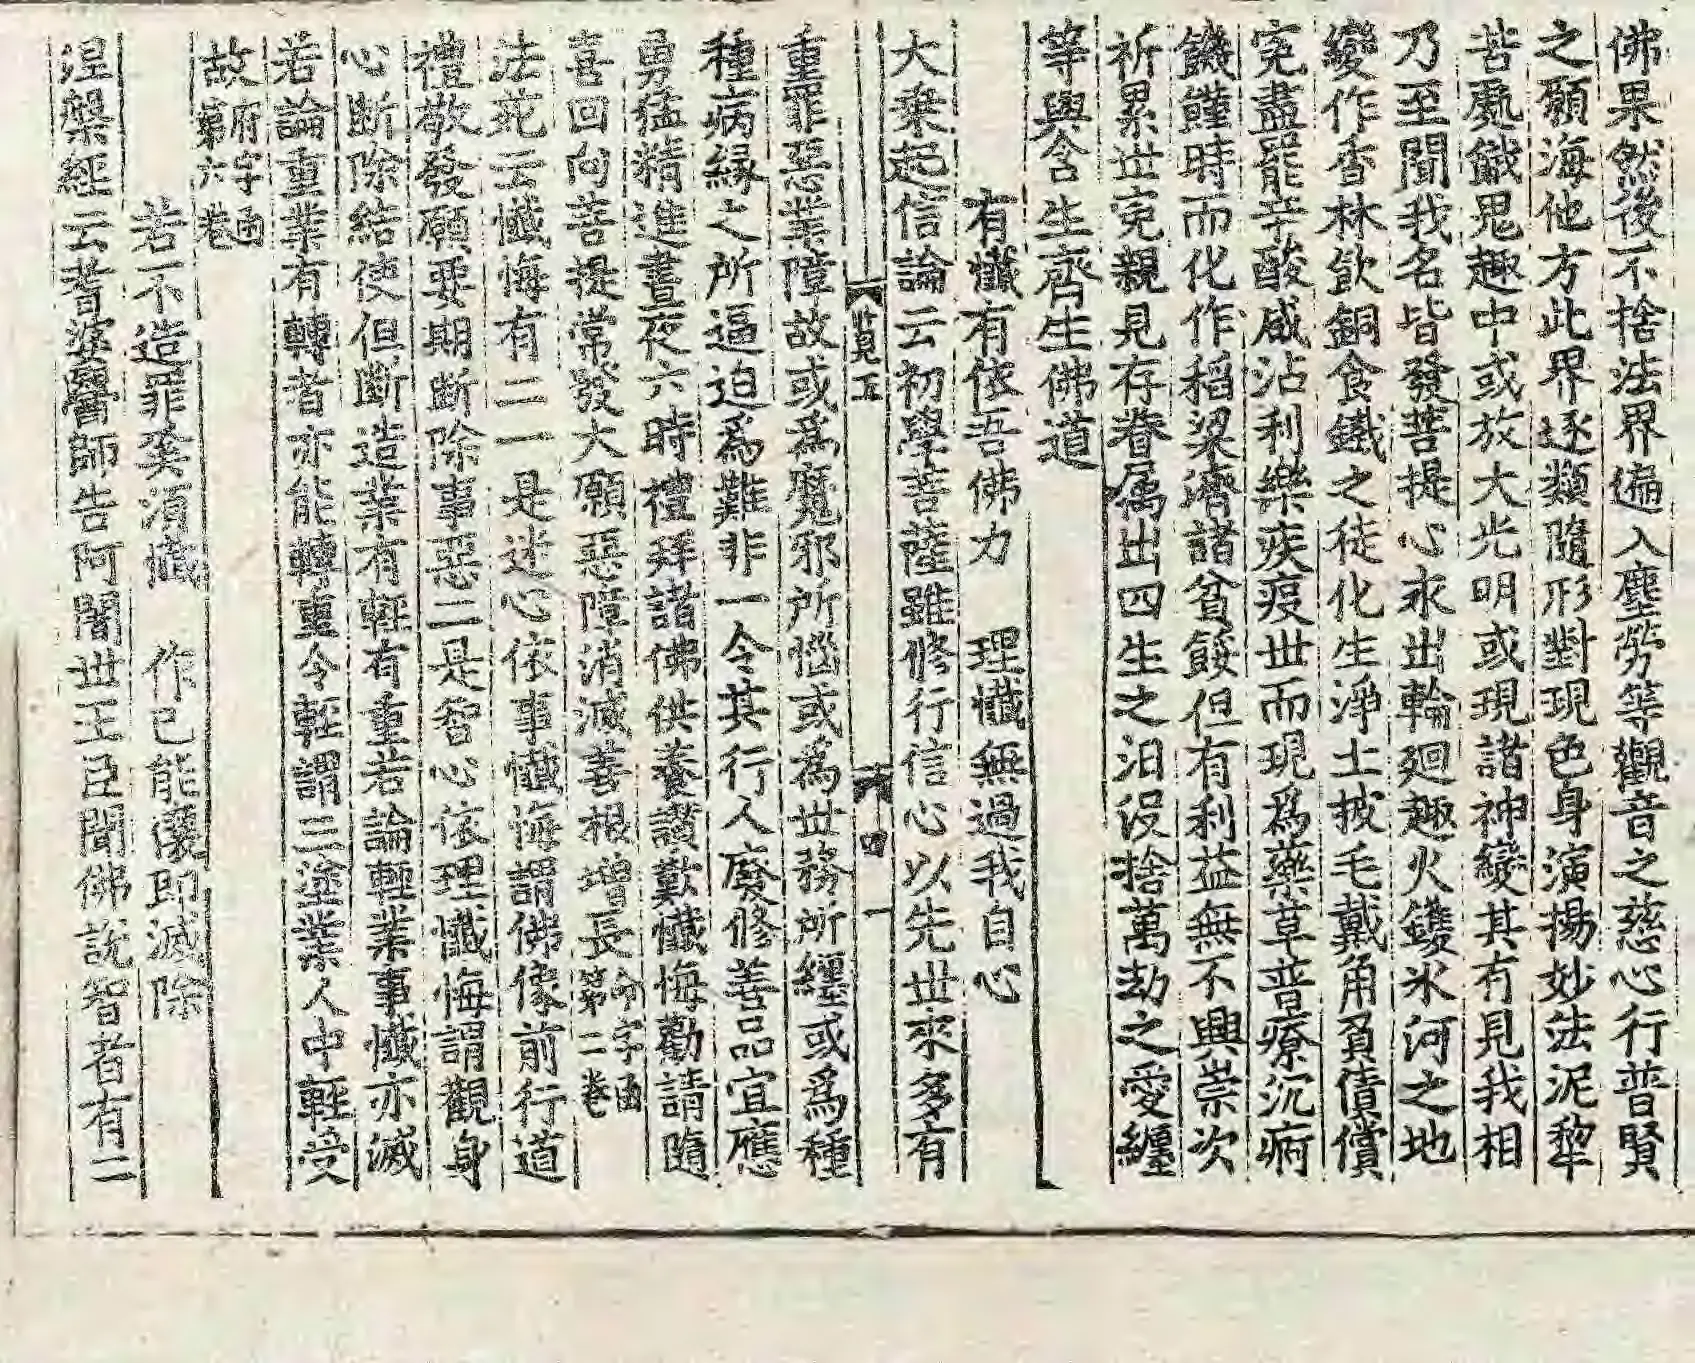 佛果然後不捨法界遍入塵勞等觀音之慈心行普賢
之願海他方此界逐類隨形對現色身演揚妙法泥犁
苦處餓鬼趣中或放大光明或現諸神變其有見我相
乃至聞我名皆發菩提心永出輪廻趣火鑊氷河之地
變作香林飮銅食鐵之徒化生淨土披毛戴角負債償
寃盡罷辛酸咸沾利樂疾疫世而現爲藥草普療沉痾
饑饉時而化作稻梁濟諸貧餒但有利益無不興崇次
祈累世寃親見存眷属出四生之汨没捨萬劫之愛纏
等與含生齊生佛道
有懺有依吾佛力　理懺無過我自心
大乗起信論云初學菩薩雖修行信心以先世來多有
四　一
重罪惡業障故或爲魔邪所惱或爲世務所纒或爲種
種病緣之所逼迫爲難非一令其行人廢修善品宜應
勇猛精進晝夜六時禮拜諸佛供養讃歎懺悔勸請隨
喜回向菩提常發大願惡障消滅善根增長
字函第二卷
法苑云懺悔有二一是迷心依事懺悔謂佛像前行道
禮敬發願要期斷除事惡二是智心依理懺悔謂觀身
心断除結使但斷造業有輕有重若論輕業事懺亦滅
若論重業有轉者亦能轉重令輕謂三塗業人中輕受
故府字函第六卷
若不造罪奚須懺　作已能懺即滅除
涅槃經云耆婆醫師告阿闍世王臣聞佛說智者有二